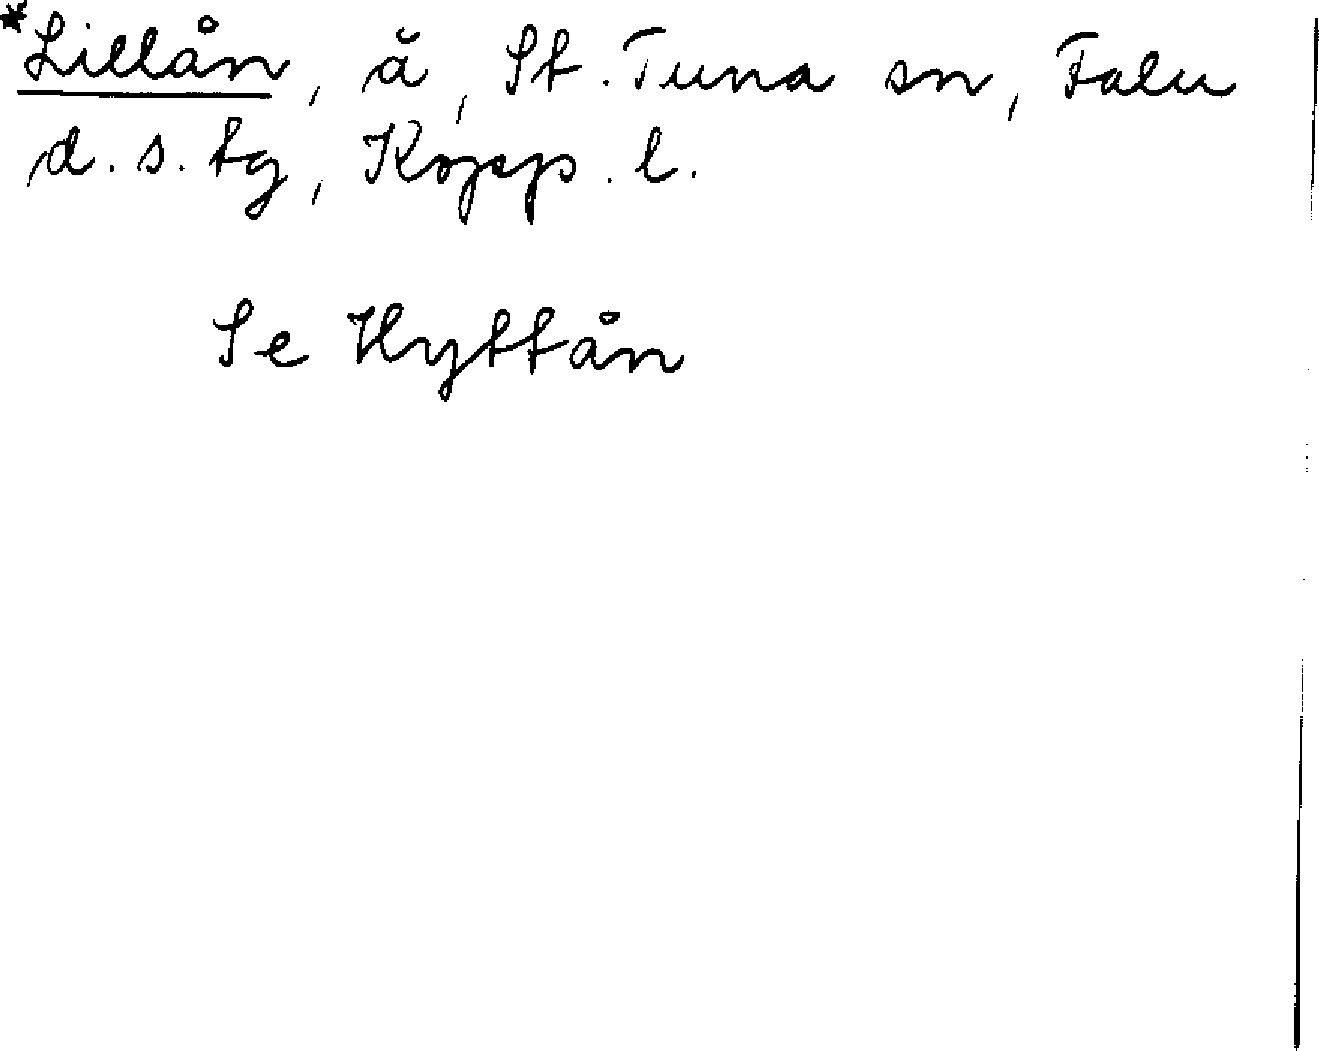 *Lillån, å, St. Tuna sn, Falu
d. s. tg, Kopp. l.
Se Hyttån